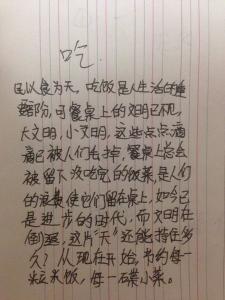 吃
民以食为天。吃饭是人生活的重
要部分,可餐桌上的文明已视,
大文明,小文明,这些点点滴
滴已被人们丢掉,餐桌上总会
被留下没吃完的饭菜,是人们
的浪费使它们留在桌上,如今已
是进步的时代,而文明在
倒退,这片“天”还能持住多
久?从现在开始,节约每一
粒米饭,每一碟小菜。